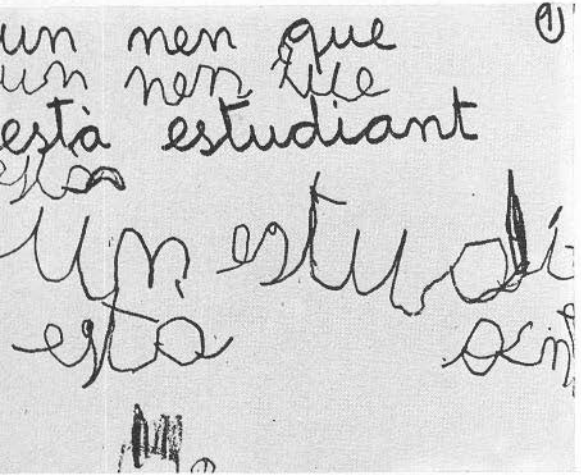 un nen que
un nen que
està estudiant
està
un estudi
està ant